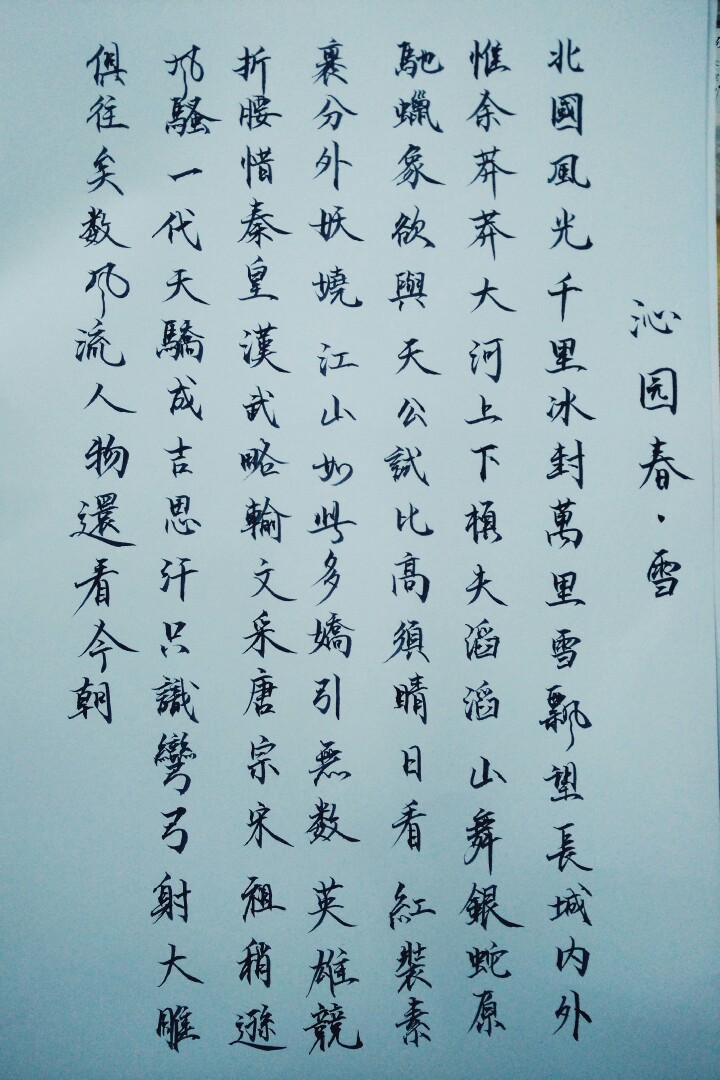 沁园春·雪
北國風光千里冰封萬里雪飄望長城内外
惟余莽莽大河上下頓失滔滔山舞銀蛇原
馳蠟象欲與天公試比高須晴日看紅裝素
裹分外妖嬈江山如此多嬌引無数英雄競
折腰惜秦皇漢武略輸文采唐宗宋祖稍遜
風騷一代天驕成吉思汗只識彎弓射大雕
俱往矣数風流人物還看今朝